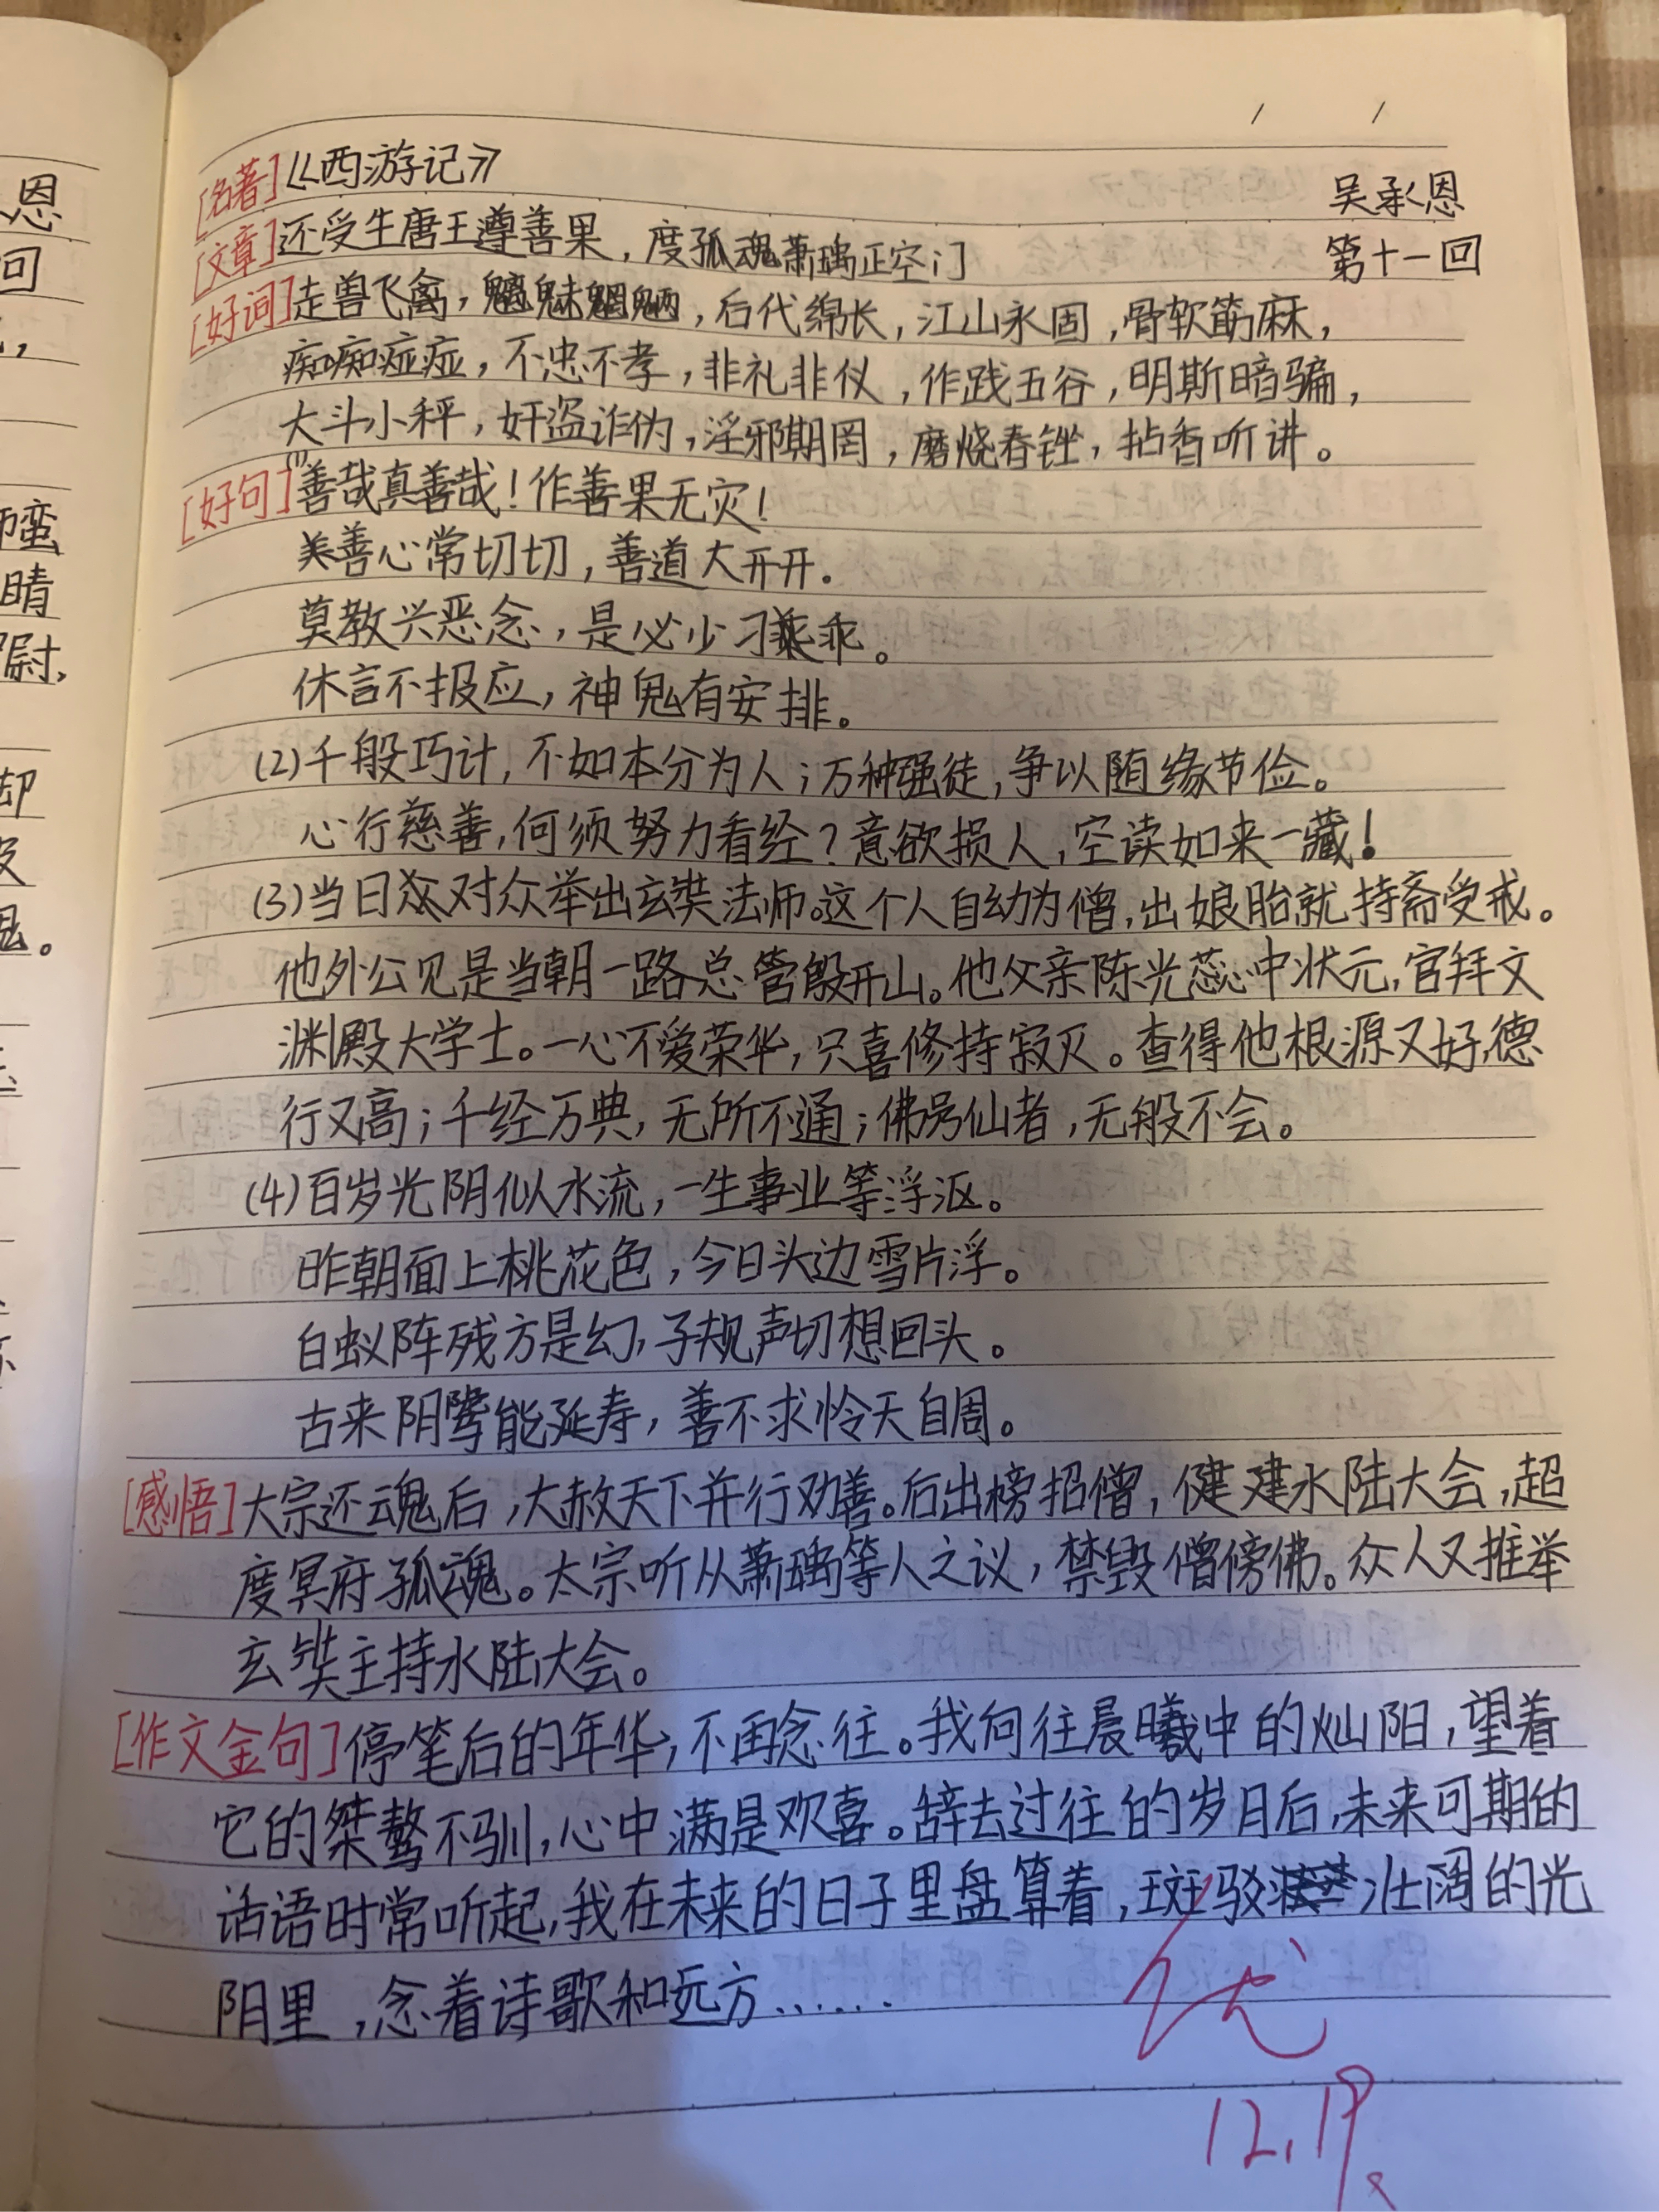 [名著]《西游记》 吴承恩
[文章]还受生唐王遵善果，度孤魂萧瑀正空门 第十一回
[好词]走兽飞禽，魑魅魍魉，后代绵长，江山永固，骨软筋麻，
痴痴痖痖，不忠不孝，非礼非仪，作践五谷，明斯暗骗，
大斗小秤，奸盗诈伪，淫邪期罔，磨烧舂锉，拈香听讲。
[好句](1)善哉真善哉！作善果无灾！
善心常切切，善道大开开。
莫教兴恶念，是必少刁乖。
休言不报应，神鬼有安排。
(2)千般巧计，不如本分为人；万种强徒，争以随缘节俭。
心行慈善，何须努力看经？意欲损人，空读如来一藏！
(3)当日对众举出玄奘法师。这个人自幼为僧，出娘胎就持斋受戒。
他外公见是当朝一路总管殷开山。他父亲陈光蕊中状元，官拜文
渊殿大学士。一心不爱荣华，只喜修持寂灭。查得他根源又好，德
行又高；千经万典，无所不通；佛号仙者，无般不会。
(4)百岁光阴似水流，一生事业等浮沤。
昨朝面上桃花色，今日头边雪片浮。
白蚁阵残方是幻，子规声切想回头。
古来阴骘能延寿，善不求怜天自周。
[感悟]太宗还魂后，大赦天下并行劝善。后出榜招僧，健建水陆大会，超
度冥府孤魂。太宗听从萧瑀等人之议，禁毁僧傍佛。众人又推举
玄奘主持水陆大会。
[作文金句]停笔后的年华，不再念往。我向往晨曦中的灿阳，望着
它的桀骜不驯，心中满是欢喜。辞去过往的岁月后，未来可期的
话语时常听起，我在未来的日子里盘算着，斑驳壮阔的光
阴里，念着诗歌和远方……
优
12.19.
恩
回
蛮
晴
尉，
却
。